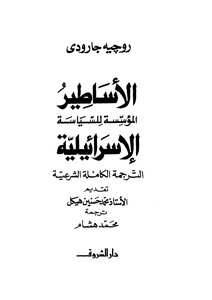 روجيه جارودى
الأساطير
المؤسسة للسياسة
الإسرائيلية
الترجمة الكاملة الشرعية
تقديم
الأستاذ محمد حسنين هيكل
ترجمة
محمد هشام
دار الشروق